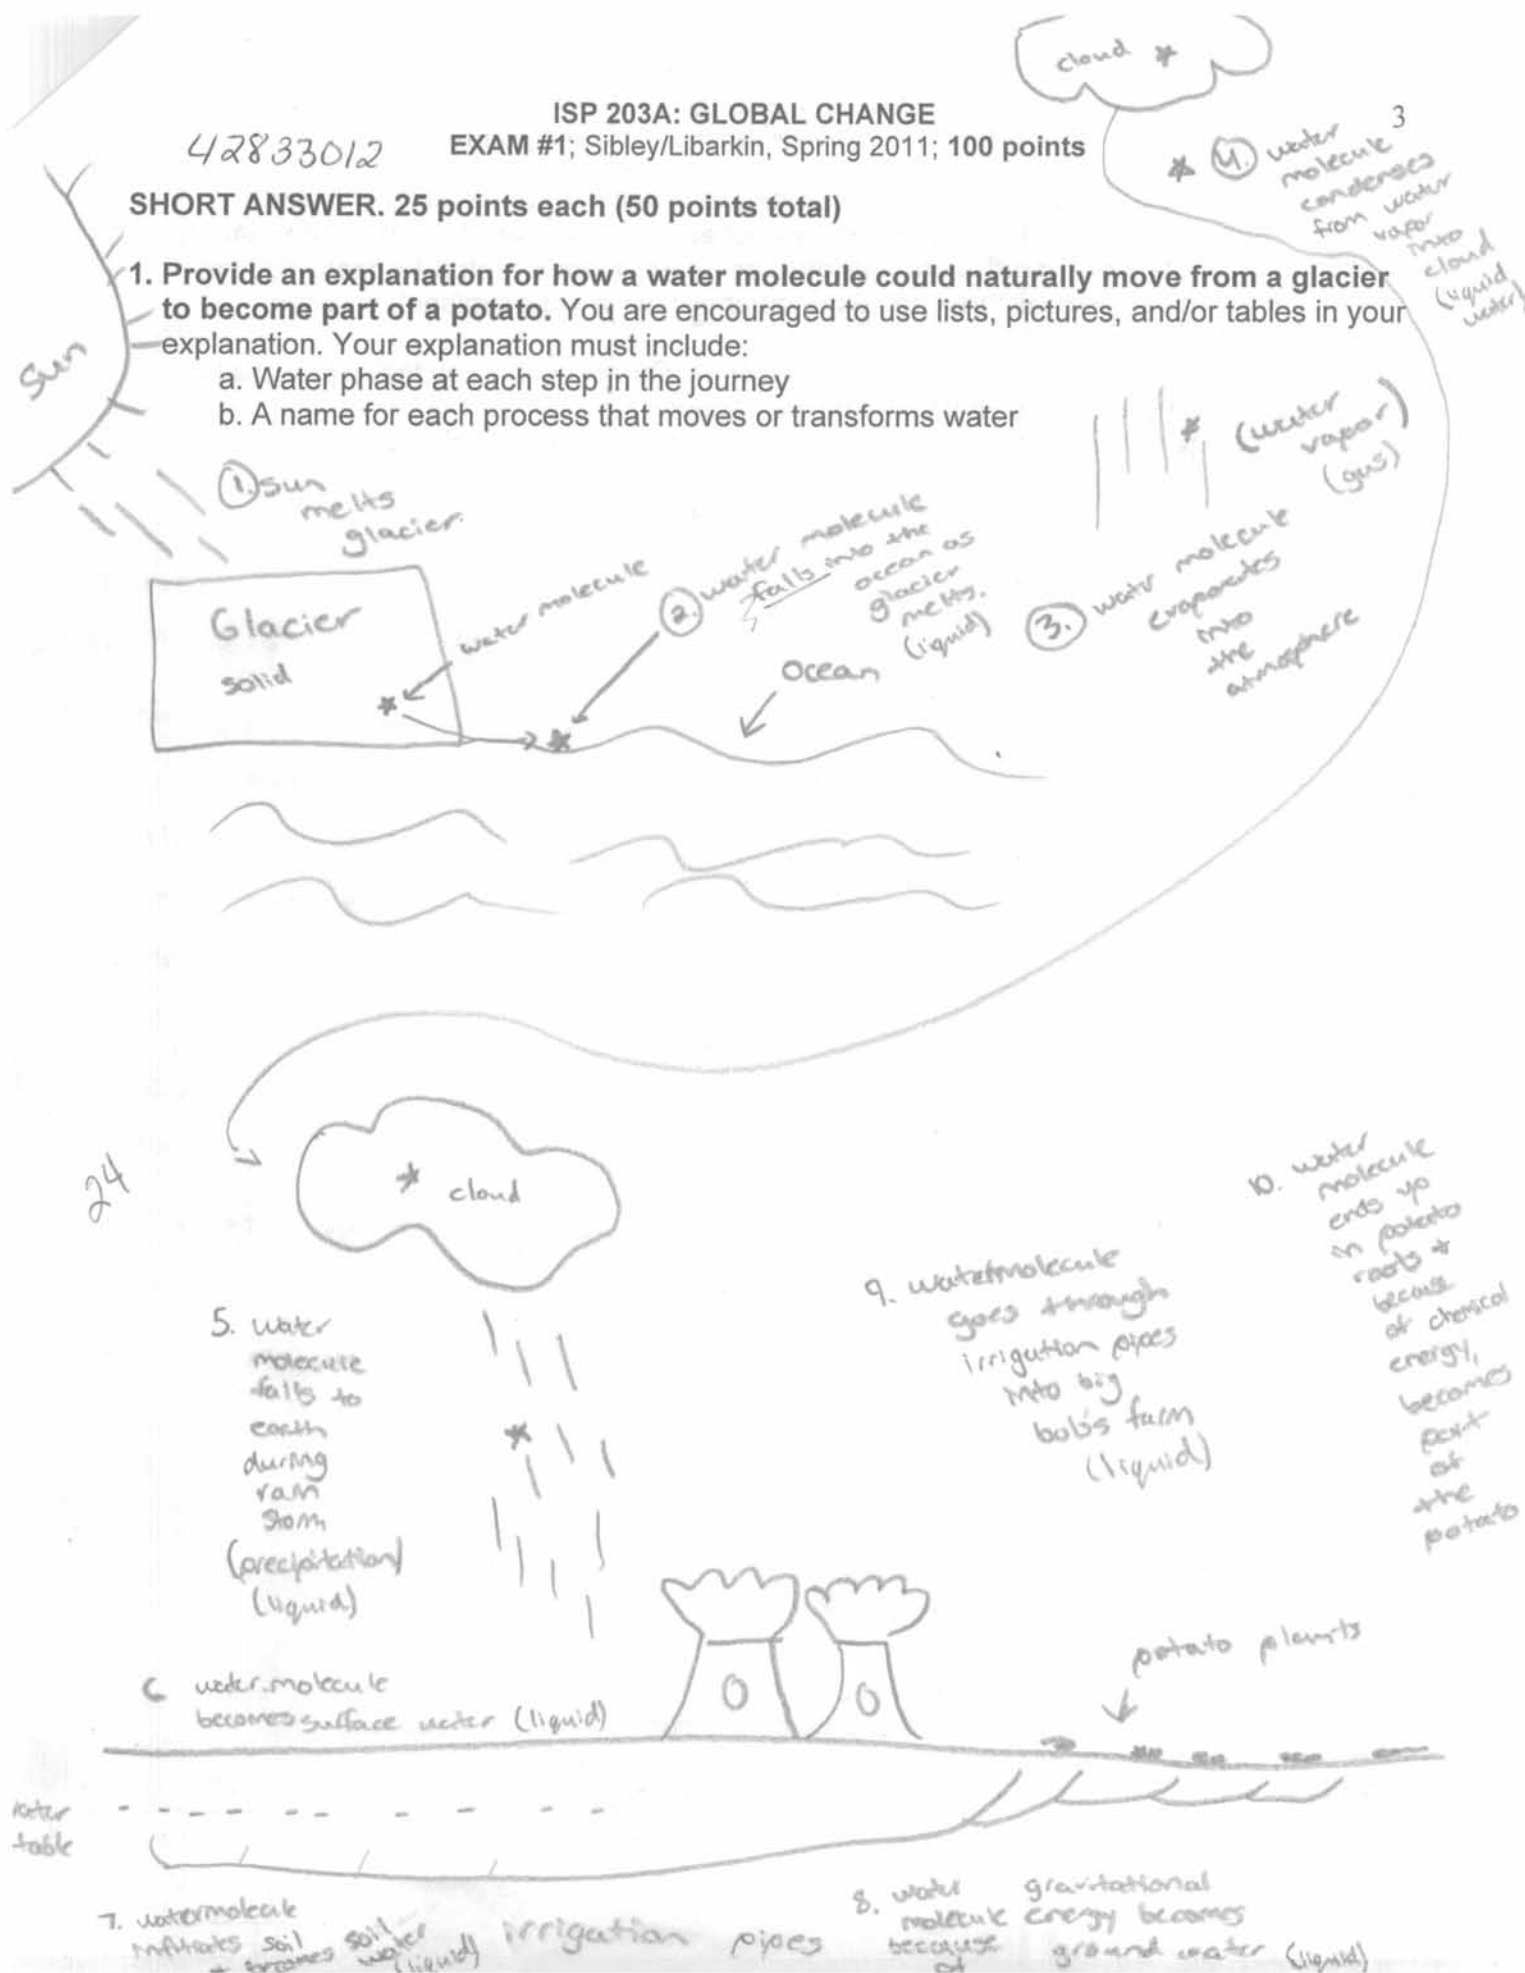 cloud
3
ISP 203A: GLOBAL CHANGE
42833012
EXAM #1; Sibley/Libarkin, Spring 2011; 100 points
4. water
molecule
condenses
from water
vapor
into
cloud
(liquid
water)
SHORT ANSWER. 25 points each (50 points total)
1. Provide an explanation for how a water molecule could naturally move from a glacier
to become part of a potato. You are encouraged to use lists, pictures, and/or tables in your
explanation. Your explanation must include:
a. Water phase at each step in the journey
b. A name for each process that moves or transforms water
Sun
(water
vapor)
(gas)
1. Sun
melts
glacier.
Glacier
solid
water molecule
2. water molecule
falls into the
ocean as
glacier
melts.
(liquid)
Ocean
3. water molecule
evaporates
into
the
atmosphere
24
cloud
5. water
molecule
falls to
earth
during
rain
storm
(precipitation)
(liquid)
9. watermolecule
goes through
irrigation pipes
into big
bob's farm
(liquid)
10. water
molecule
ends up
in potato
roots +
because
of chemical
energy,
becomes
part
of
the
potato
6 water molecule
becomes surface water (liquid)
potato plants
water
table
7. watermolecule
infiltrates soil
+ becomes soil
water
(liquid)
irrigation pipes
8. water gravitational
molecule energy becomes
because ground water (liquid)
of